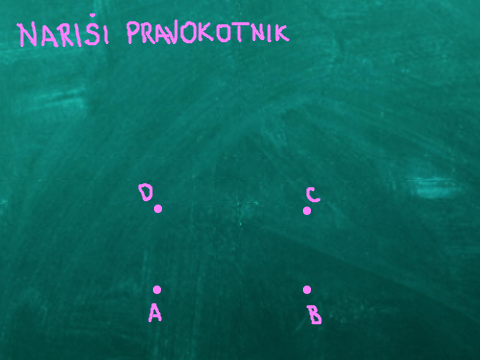 NARIŠI PRAVOKOTNIK
D C
A B